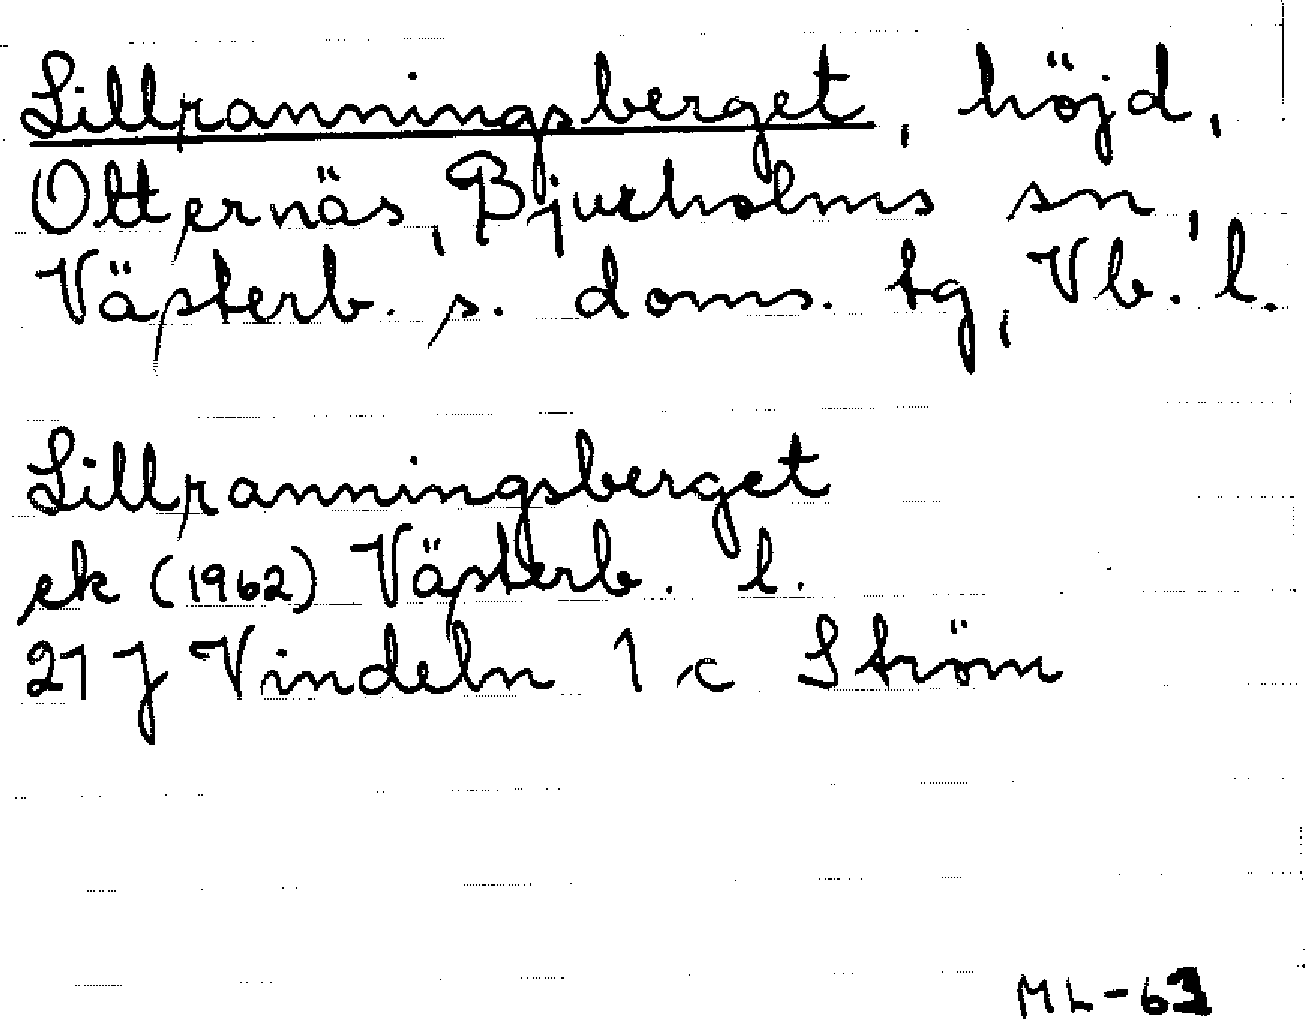 Lillranningsberget, höjd,
Otternäs, Bjurholms sn,
Västerb. s. doms. tg, Vb. l.
Lillranningsberget
ek (1962) Västerb. l.
21 J Vindeln 1 c Ström
ML-63